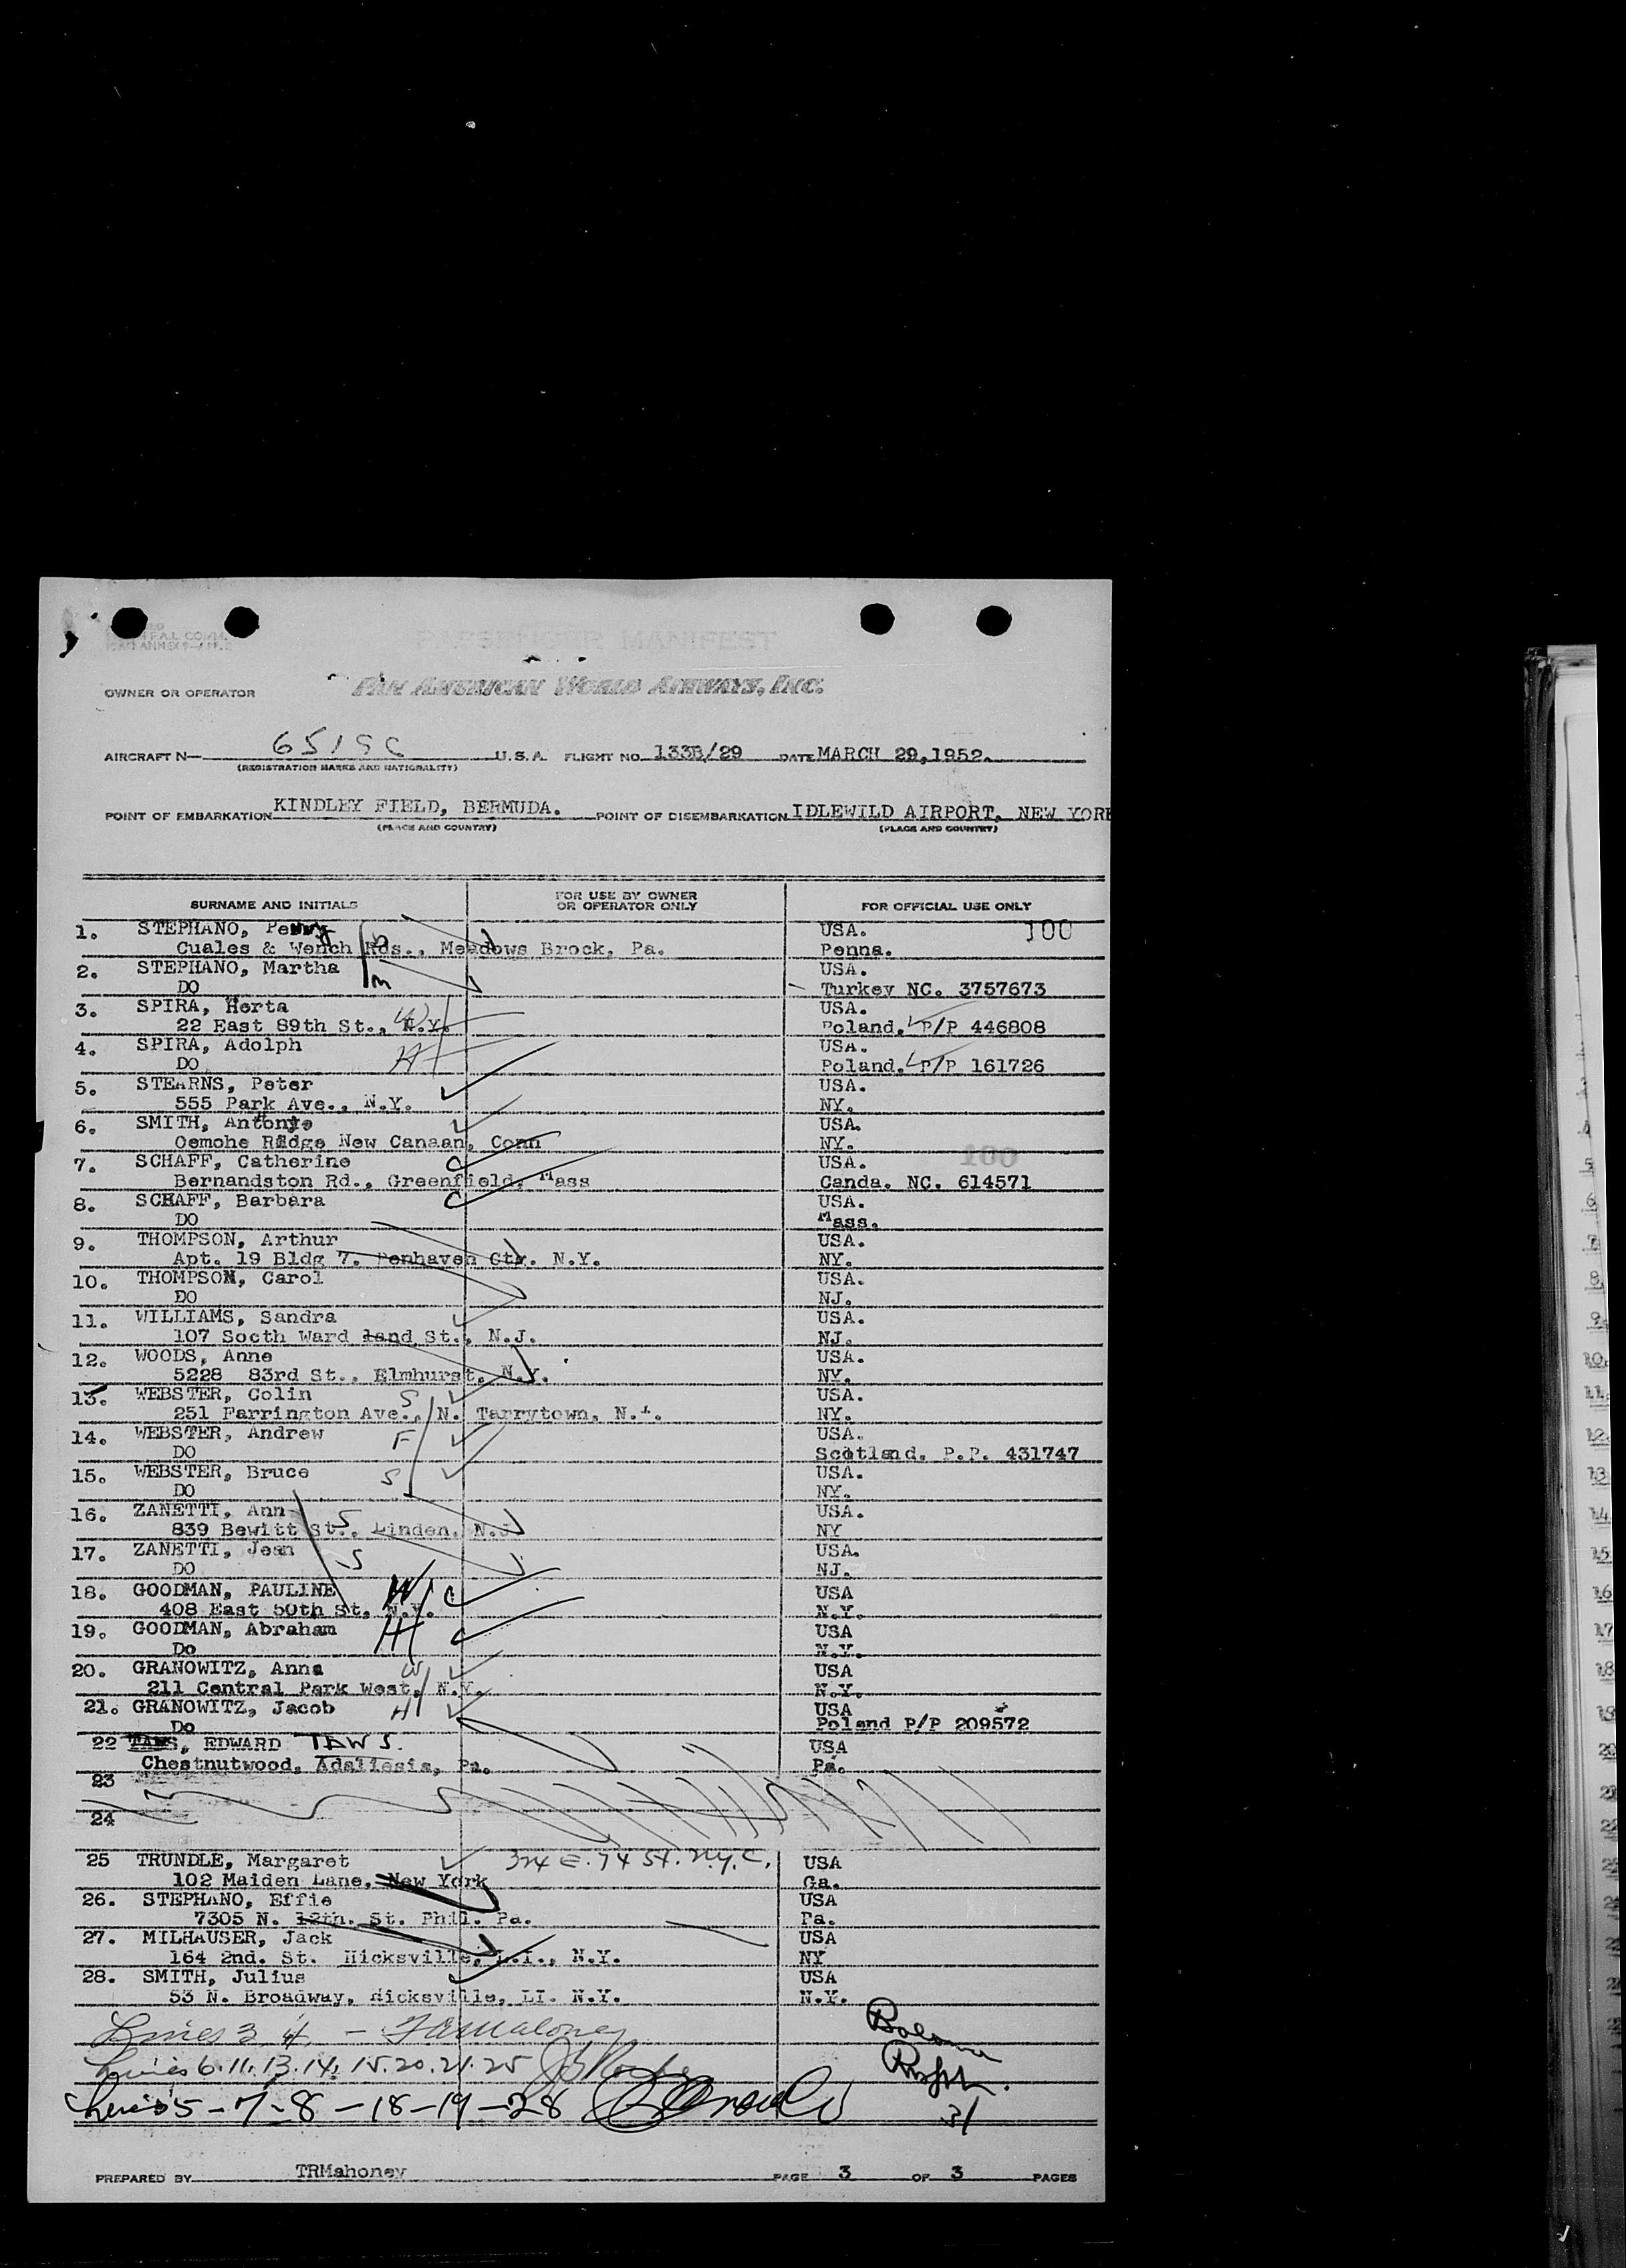 PASSENGER MANIFEST
OWNER OR OPERATOR PAN AMERICAN WORLD AIRWAYS, INC.
AIRCRAFT N— 6519C U.S.A. FLIGHT NO. 133B/29 DATE MARCH 29,1952.
(REGISTRATION MARKS AND NATIONALITY)
POINT OF EMBARKATION KINDLEY FIELD, BERMUDA. POINT OF DISEMBARKATION IDLEWILD AIRPORT, NEW YORK
(PLACE AND COUNTRY) (PLACE AND COUNTRY)
SURNAME AND INITIALS FOR USE BY OWNER OR OPERATOR ONLY FOR OFFICIAL USE ONLY
1. STEPHANO, Penny USA. 100
Cuales & Wench Rds., Meadows Brock, Pa. Penna.
2. STEPHANO, Martha m USA.
DO Turkey NC. 3757673
3. SPIRA, Herta W USA.
22 East 89th St., N.Y. Poland. P/P 446808
4. SPIRA, Adolph H USA.
DO Poland. P/P 161726
5. STEARNS, Peter USA.
555 Park Ave., N.Y. NY.
6. SMITH, USA.
Oemohe Ridge New Canaan, Conn NY.
7. SCHAFF, Catherine C USA. 100
Bernandston Rd., Greenfield, Mass Canda. NC. 614571
8. SCHAFF, Barbara C USA.
DO Mass.
9. THOMPSON, Arthur USA.
Apt. 19 Bldg 7. Penhaven Cty. N.Y. NY.
10. THOMPSON, Carol USA.
DO NJ.
11. WILLIAMS, Sandra USA.
107 Socth Ward land St., N.J. NJ.
12. WOODS, Anne USA.
5228 83rd St., Elmhurst, N.Y. NY.
13. WEBSTER, Colin S USA.
251 Farrington Ave., N. Tarrytown, N.Y. NY.
14. WEBSTER, Andrew F USA.
DO Scotland. P.P. 431747
15. WEBSTER, Bruce S USA.
DO NY.
16. ZANETTI, Ann S USA.
839 Bewitt St., Linden, N.J NY
17. ZANETTI, Jean S USA.
DO NJ.
18. GOODMAN, PAULINE W USA
408 East 50th St, N.Y. N.Y.
19. GOODMAN, Abraham H USA
Do N.Y.
20. GRANOWITZ, Anna W USA
211 Central Park West, N.Y. N.Y.
21. GRANOWITZ, Jacob H USA
Do Poland P/P 209572
22 TAWS, EDWARD TAWS. USA
Chestnutwood, Adallesia, Pa. Pa.
23
24
25 TRUNDLE, Margaret 324 E. 74 St. N.Y.C. USA
102 Maiden Lane, New York Ga.
26. STEPHANO, Effie USA
7305 N. 12th. St. Phil. Pa. Pa.
27. MILHAUSER, Jack USA
164 2nd. St. Hicksville, L.I., N.Y. NY
28. SMITH, Julius USA
53 N. Broadway, Hicksville, LI. N.Y. N.Y.
Lines 3, 4, —
Lines 6.11.13.14.15.20.21.25
Lines 5-7-8-18-19-28
31
PREPARED BY TRMahoney PAGE 3 OF 3 PAGES